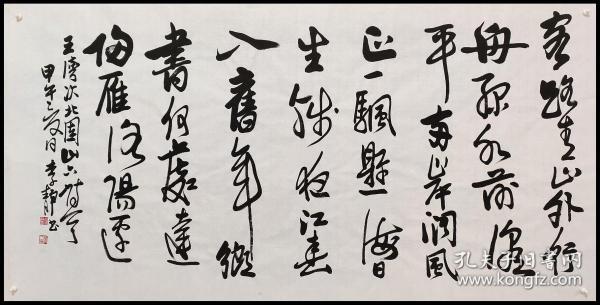 客路青山外行
舟綠水前潮
平兩岸闊風
正一颿懸海日
生殘夜江春
入舊年鄉
書何處達
歸雁洛陽邊
王灣次北固山下詩
甲午之夏日李静书
孔夫子旧书网
www.kongfz.com